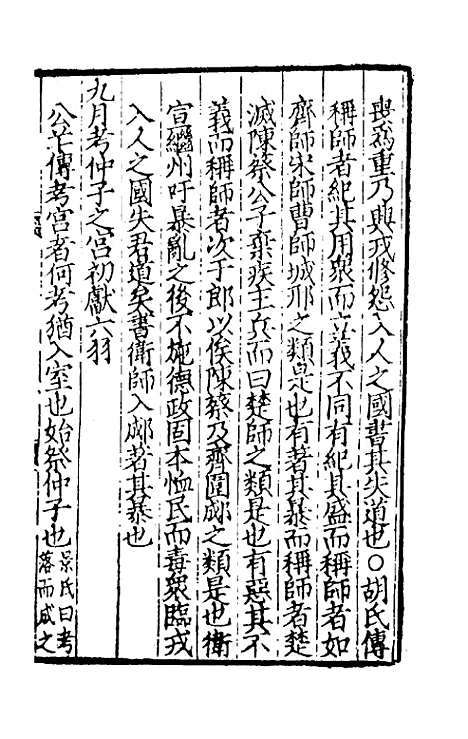 喪爲重乃興戎修怨入人之國書其失道也○胡氏傳
稱師者紀其用衆而立義不同有紀其盛而稱師者如
齊師宋師曹師城邢之類是也有著其暴而稱師者楚
滅陳蔡公子棄疾主兵而曰楚師之類是也有惡其不
義而稱師者次于郎以俟陳蔡及齊圍郕之類是也衛
宣繼州吁暴亂之後不施德政固本恤民而毒衆臨戎
入人之國失君道矣書衛師入郕著其暴也
九月考仲子之宮初獻六羽
公羊傳考宮者何考猶入室也始祭仲子也景氏曰考
落而成之